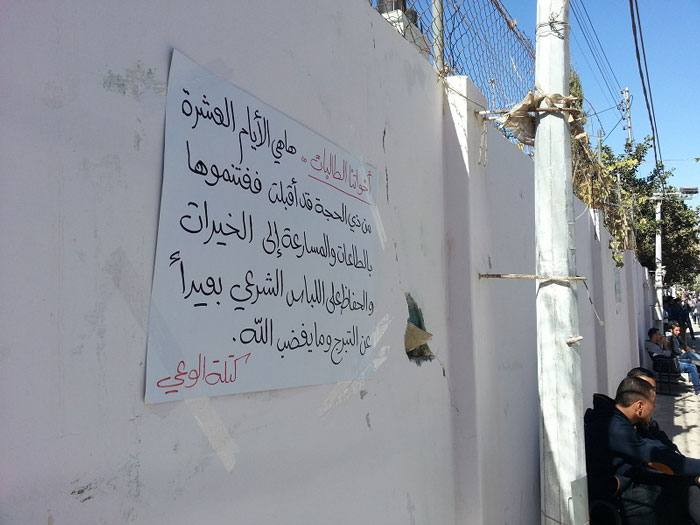 أخواتنا الطالبات .. هاهي الأيام العشرة
من ذي الحجة قد أقبلت فغتنموها
بالطاعات والمسارعة إلى الخيرات
والحفاظ على اللباس الشرعي بعيداً
عن التبرج وما يغضب الله.
كتلة الوعي